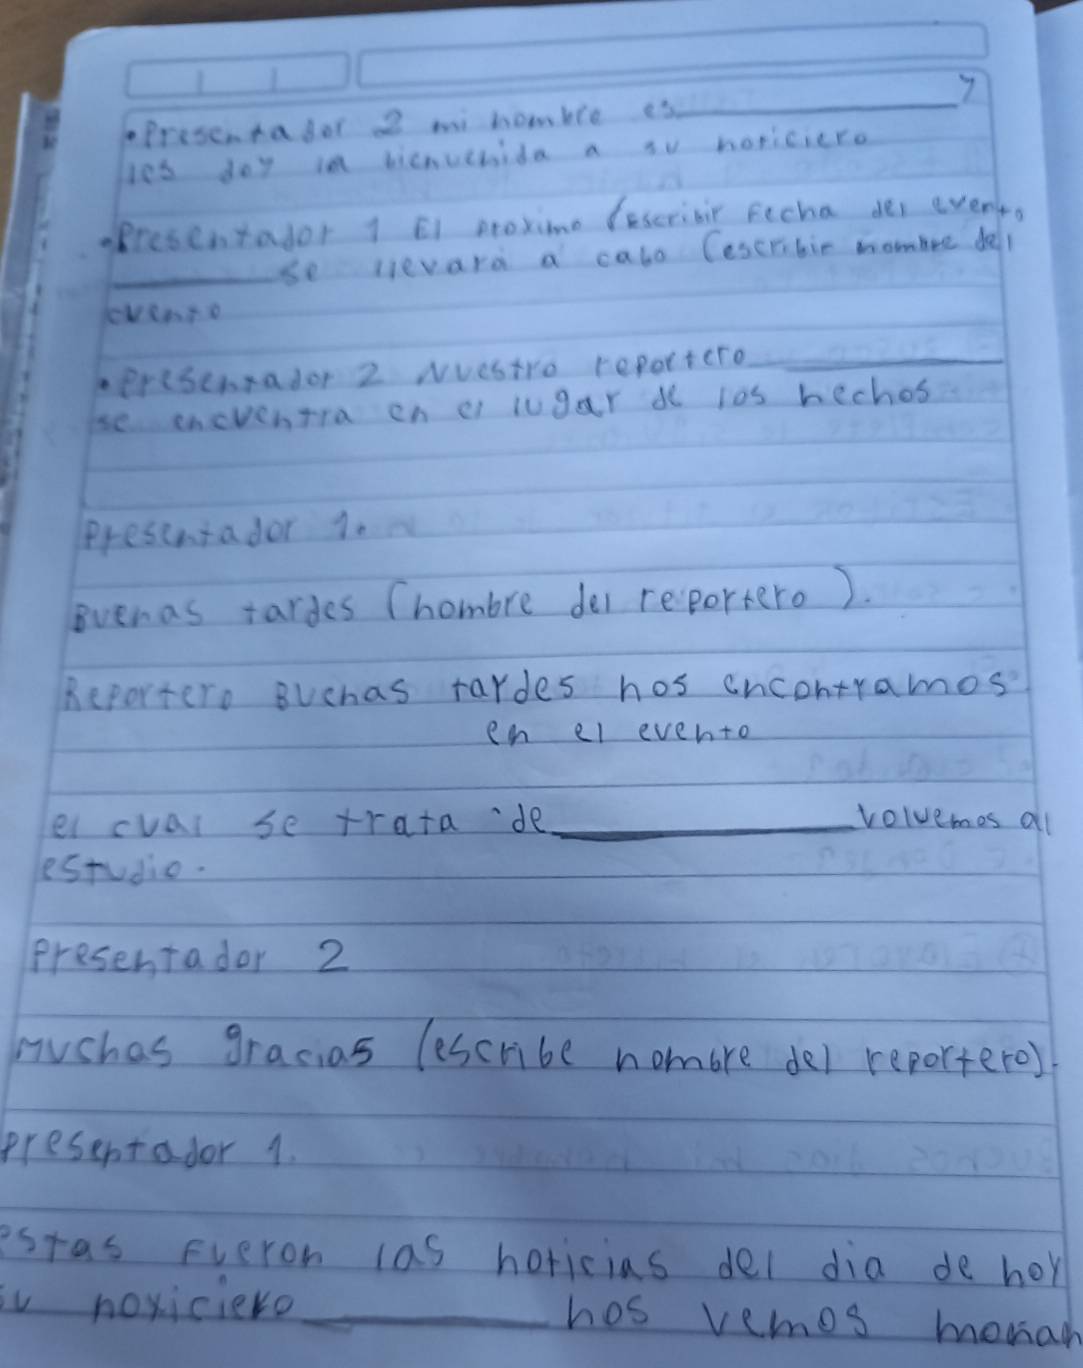 •Presentador 2 mi nombre es__________y
les doy la bienvenida a su noticiero
•Presentador 1 El proximo (escribir fecha del evento
__________se llevara a cabo (escribir nombre del
evento
•Presentador 2 Nuestro reportero__________
se encuentra en el lugar de los hechos
Presentador 1.
Buenas tardes (nombre del reportero).
Reportero Buenas tardes nos encontramos
en el evento
el cual se trata de__________volvemos al
estudio.
Presentador 2
Muchas gracias (escribe nombre del reportero).
Presentador 1.
estas fueron las noticias del dia de hoy
su noticiero__________nos vemos manan